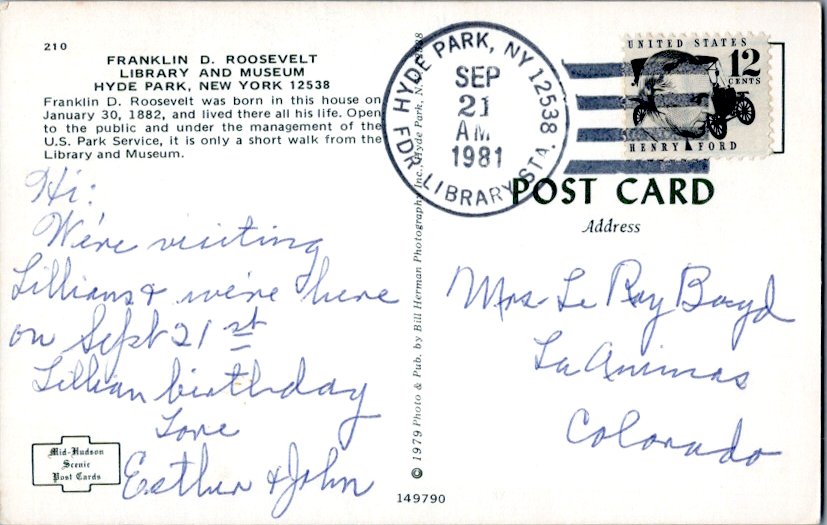 210
FRANKLIN D. ROOSEVELT
LIBRARY AND MUSEUM
HYDE PARK, NEW YORK 12538
Franklin D. Roosevelt was born in this house on
January 30, 1882, and lived there all his life. Open
to the public and under the management of the
U.S. Park Service, it is only a short walk from the
Library and Museum.
Hi:
We're visiting
Lillians & we're here
on Sept 21 st
Lillian birthday
Love
Esther & John
Mid-Hudson
Scenic
Post Cards
© 1979 Photo & Pub. by Bill Herman Photography Inc., Hyde Park, N.Y.
149790
HYDE PARK, NY 12538.
SEP
21
AM
1981
FDR LIBRARY STA.
UNITED STATES
12
CENTS
HENRY FORD
POST CARD
Address
Mrs Le Roy Boyd
La Animas
Colorado